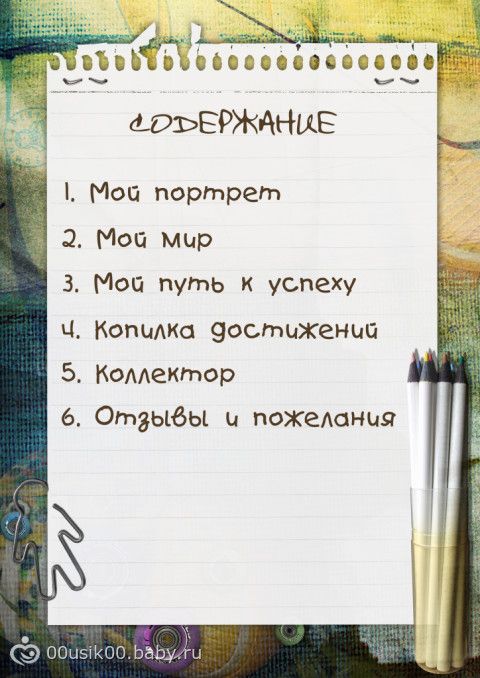 СОДЕРЖАНИЕ
1. Мой портрет
2. Мой мир
3. Мой путь к успеху
4. Копилка достижений
5. Коллектор
6. Отзывы и пожелания
00usik00.baby.ru